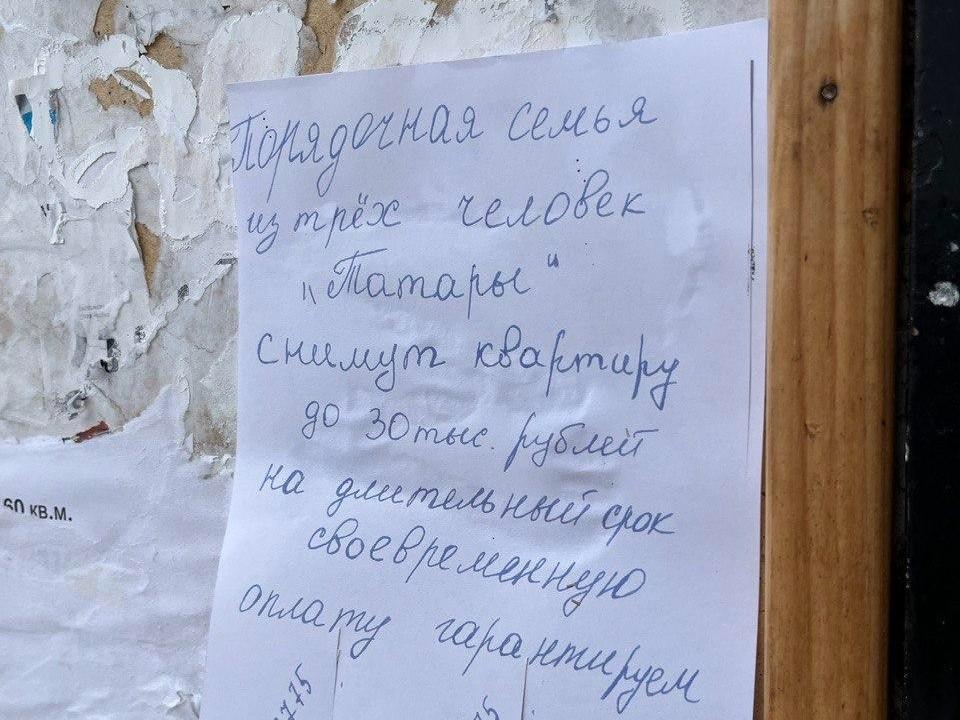 Порядочная семья
из трёх человек
„Татары“
снимут квартиру
до 30 тыс. рублей
на длительный срок
своевременную
оплату гарантируем
60 КВ.М.